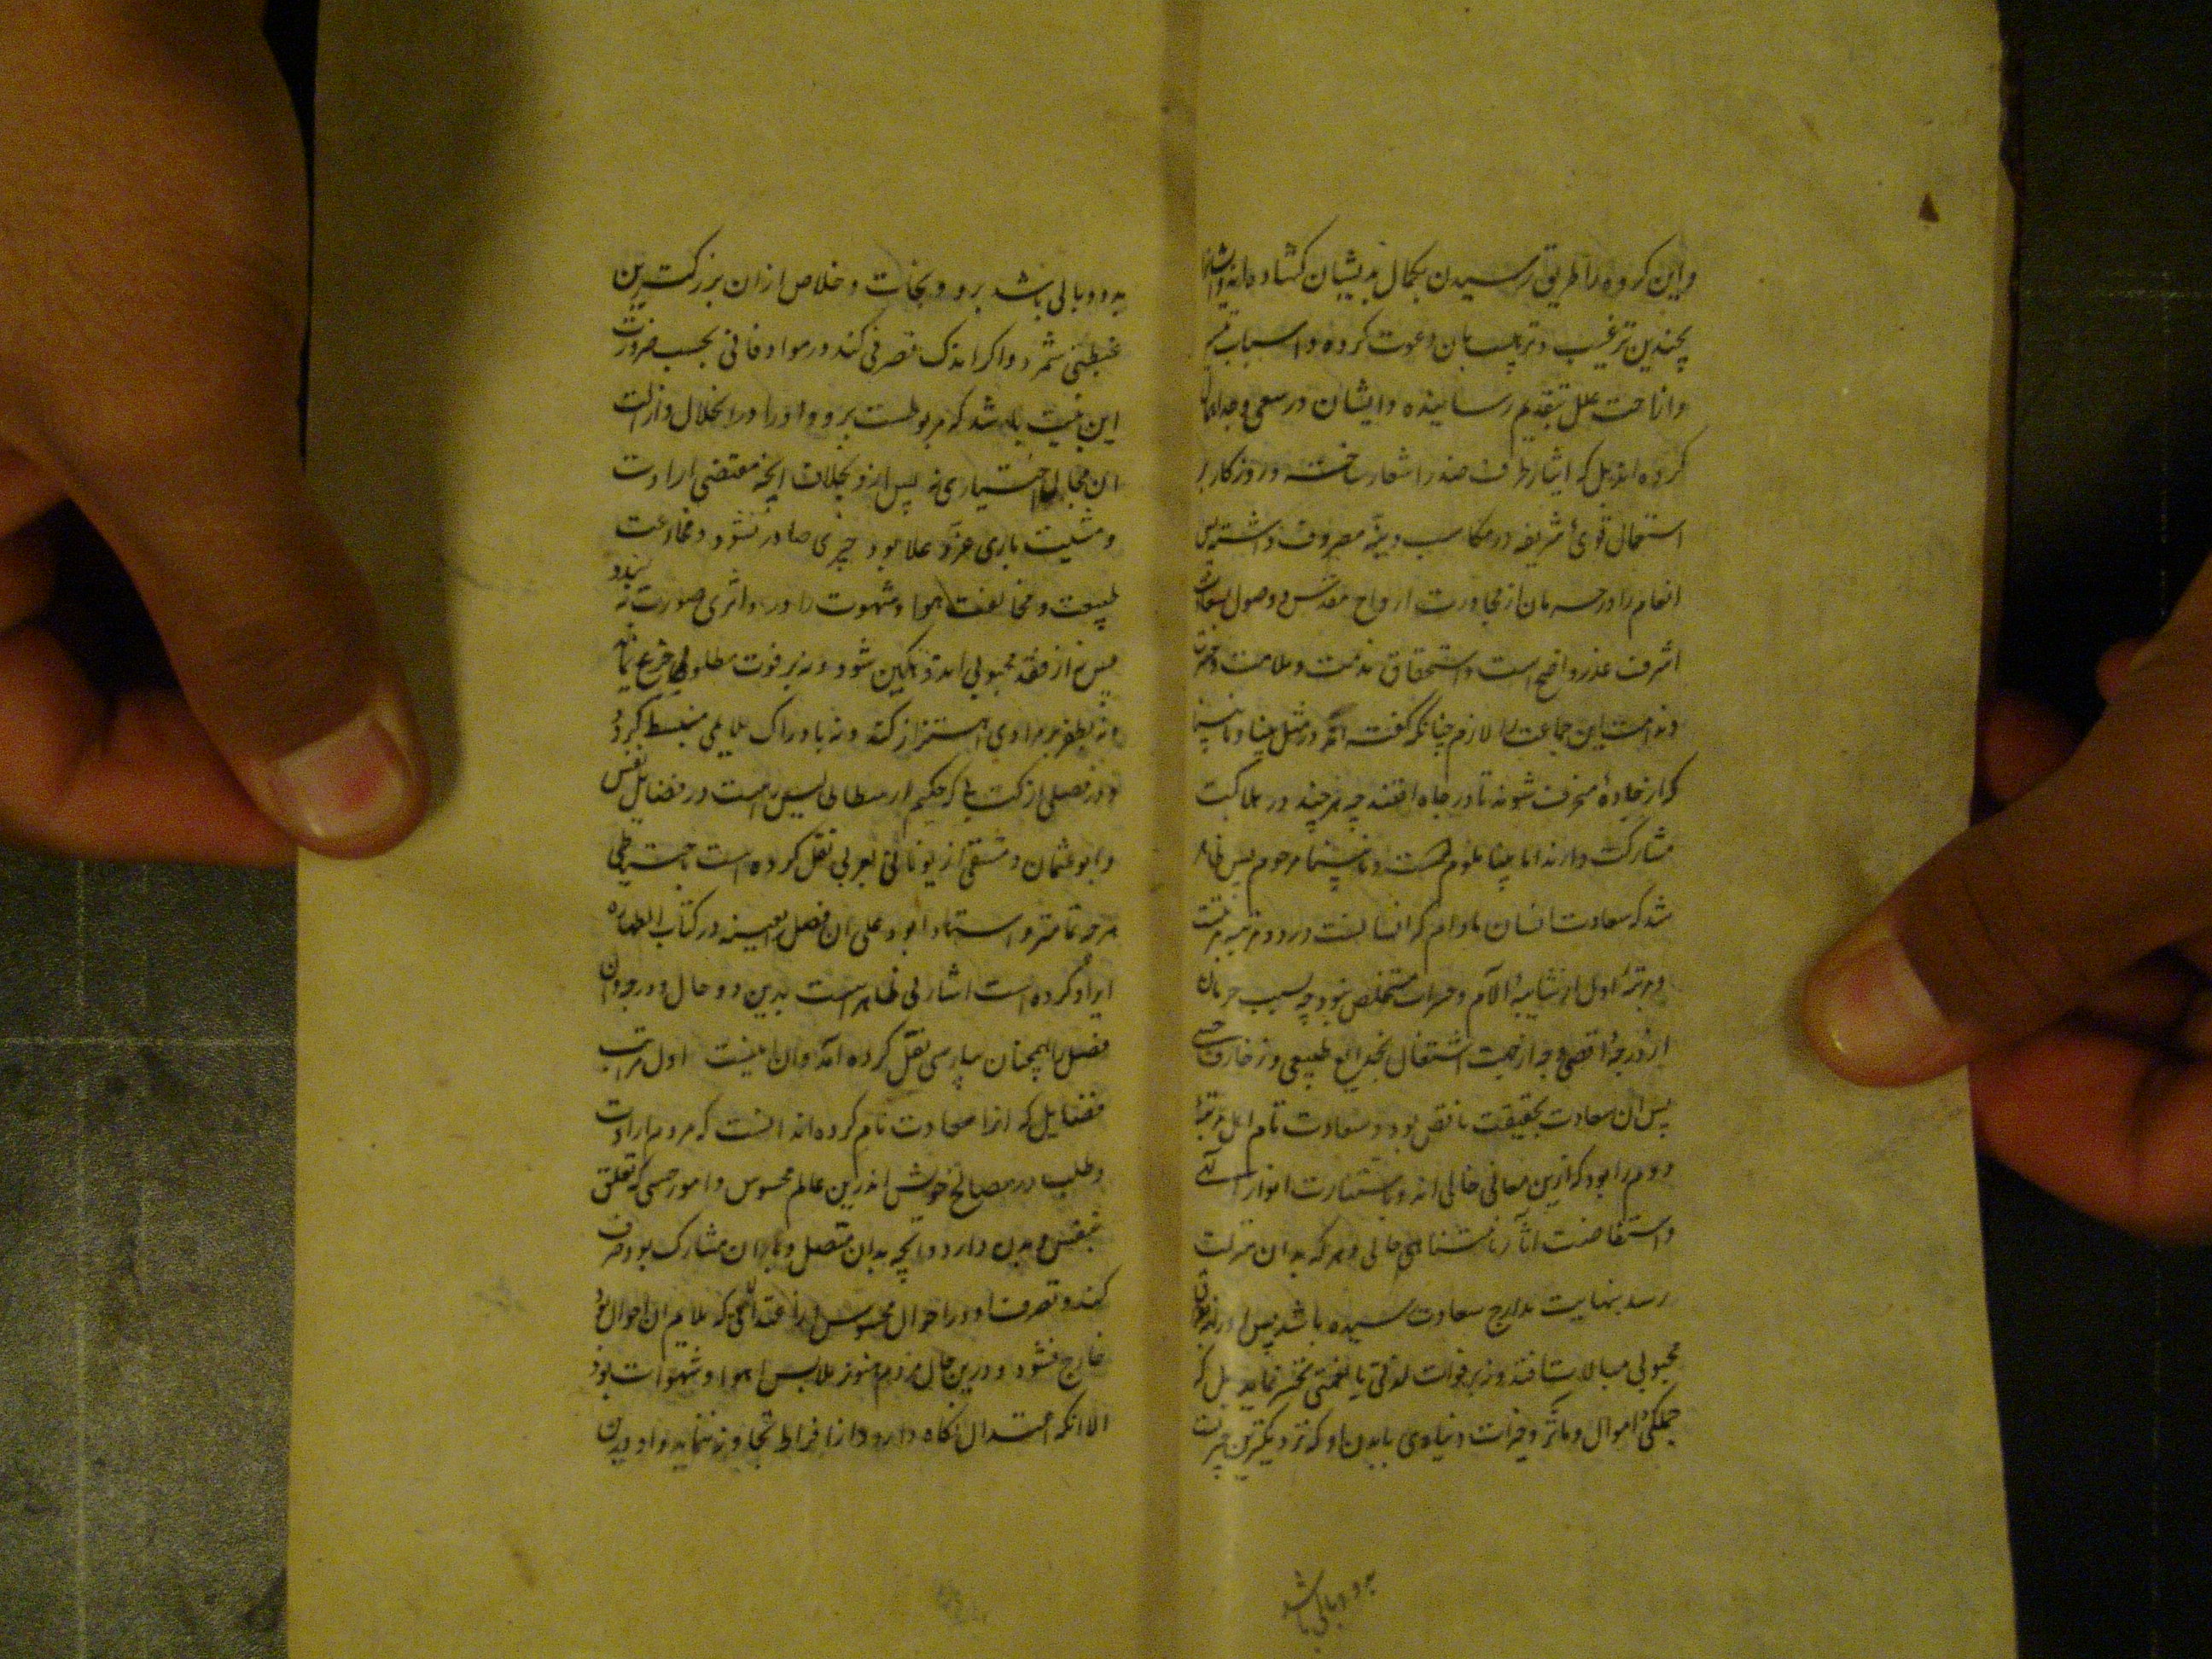 واین کروه را طریق رسیدن بکمال بدیشان کشاده‌اند وایشانرا
بچندین ترغیب و ترهیب بدان دعوت کرده و اسباب تیسیر
و ازاحت علل بتقدیم رسانیده وایشان در سعی و جد اهمال
کرده‌اند بل که ایثار طرف ضد را شعار ساخته و روزکار بر
استعمال قوی شریفه در مکاسب دنیه مصروف داشته پس
انعام را در حرمان از مجاورت ارواح مقدس و وصول بسعادات
اشرف عذر واضح است و استحقاق مذمت و ملامت و حسرت
و ندامت این جماعت را لازم چنانکه کفته‌اند در مثل بینا و نابینا
که از جاده منحرف شوند تا در چاه افتند چه هرچند در هلاکت
مشارکت دارند اما بینا ملوم است و نابینا مرحوم پس ظاهر
شد که سعادت انسان مادام که انسانست در دو مرتبه مرتب است
و مرتبه اول از شایبه آلام و حسرات مستخلص نبود چه بسبب حرمان
از درجه اقصی و چه از جهت اشتغال بخدایع طبیعی و زخارف حسی
پس ان سعادت بحقیقت ناقص بود و سعادت تام اهل مرتبه
دوم را بود که ازین معانی خالی‌اند و باستنارت انوار الهی
و استفاضت آثار نامتناهی حالی و هر که بدان منزلت
رسد بنهایت مدارج سعادت رسیده باشد پس او را نه بر فراق
محبوبی مبالات افتد و نه بر فوات لذتی یا نعمتی تحسر نماید بل که
جملکی اموال و مآثر و خیرات دنیاوی با بدن او که نزدیکترین چیزیست
برو وبالی باشد
بدو وبالی باشد برو و نجات و خلاص ازان بزرکترین
غبطتی شمرد و اکر اندک تصرفی کند در مواد فانی بحسب ضرورت
این بنیت باشد که مربوطست برو و او را در انحلال و ازالت
ان مجال اختیاری نه پس ازو بخلاف انچه مقتضی ارادت
و مشیت باری عز و علا بود چیزی صادر نشود و مخادعت
طبیعت و مخالفت هوا و شهوت را درو اثری صورت نبندد
پس نه از فقد محبوبی اندوهکین شود و نه بر فوت مطلوبی جزع نماید
و نه بظفر بر مرادی اهتزاز کند و نه بادراک ملایمی منبسط کردد
و در فصلی از کتب حکیم ارسطاطالیس است در فضایل نفس
و ابو عثمان دمشقی از یونانی بعربی نقل کرده است باحتیاطی
هرچه تمامتر و استاد ابو علی ان فصل بعینه در کتاب الطهاره
ایراد کرده است اشارتی ظاهر است بدین دو حال و درجه و ان
فصل را همچنان بپارسی نقل کرده آمد و ان اینست اول مراتب
فضایل که انرا سعادت نام کرده‌اند انست که مردم ارادت
و طلب در مصالح خویش اندرین عالم محسوس و امور حسی که تعلق
بنفس و بدن دارد و انچه بدان متصل و با ان مشارک بود صرف
کند و تصرف او در احوال محسوس از اعتدالی که ملایم ان احوال بود
خارج نشود و درین حال مردم هنوز ملابس اهوا و شهوات بود
الا انکه اعتدال نکاه دارد و از افراط تجاوز ننماید و او درین